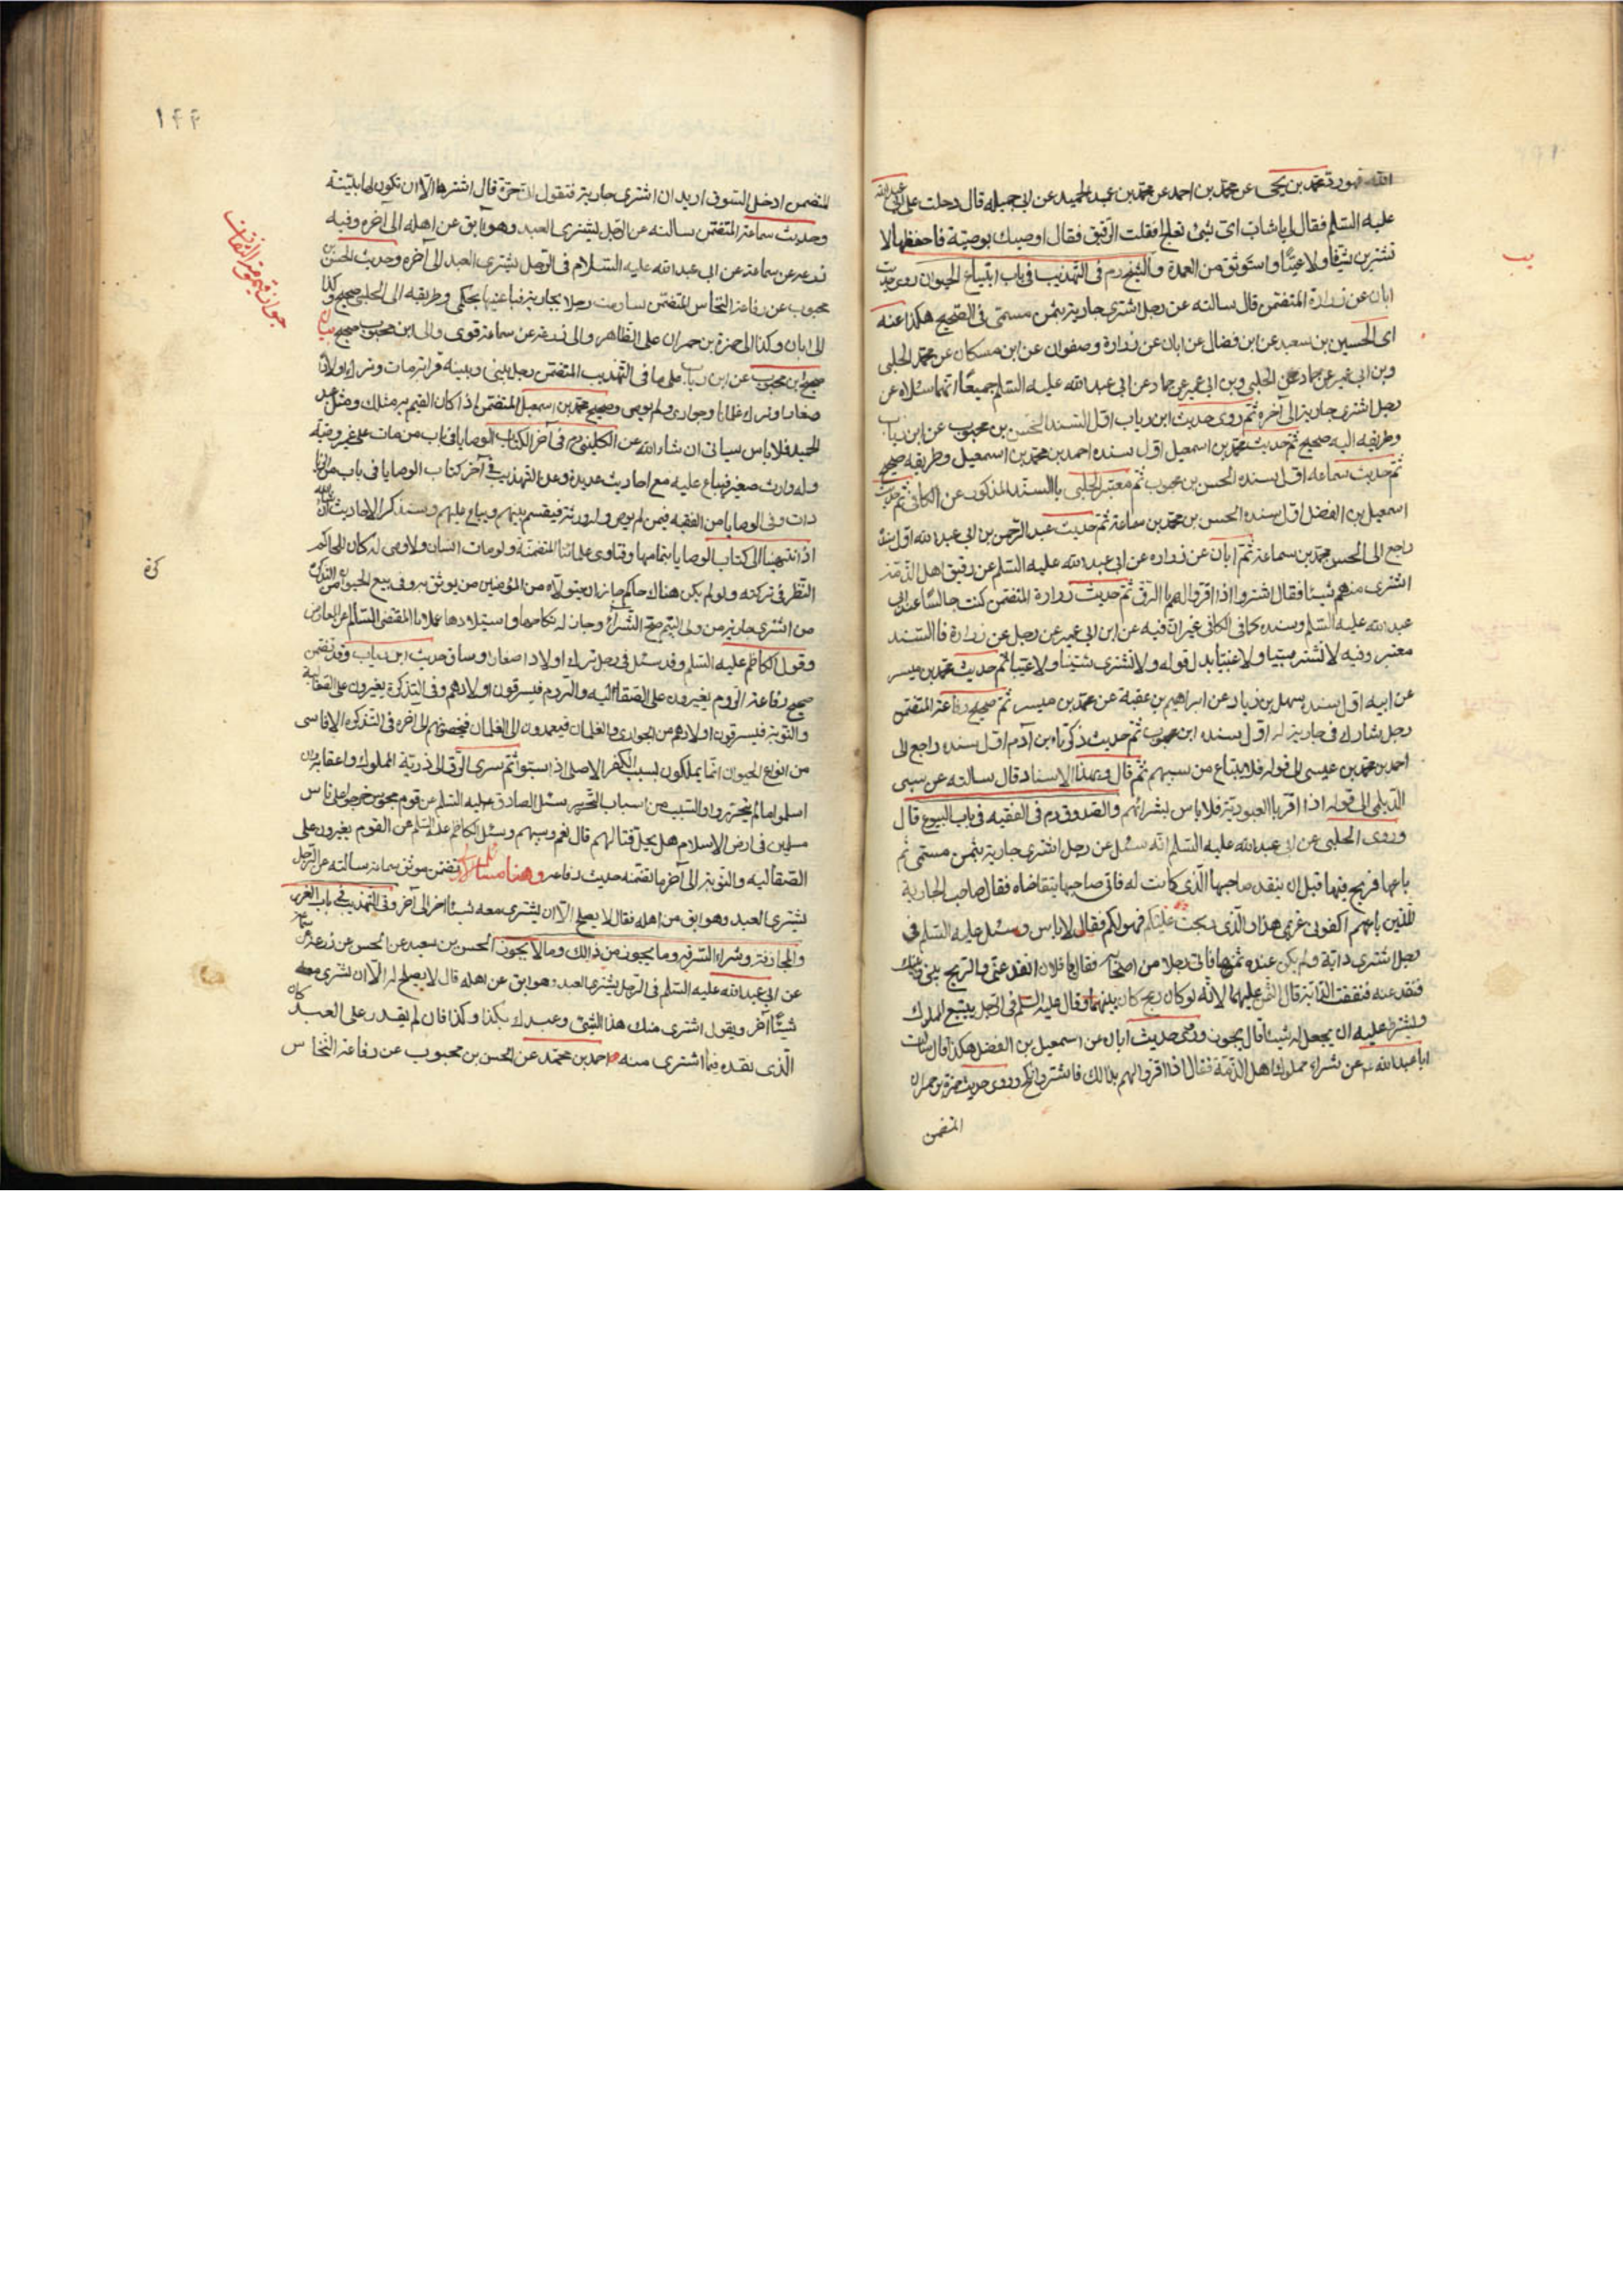 الله فهو رق محمد بن يحيى عن محمد بن احمد عن محمد بن عبد الحميد عن ابى جميله قال دخلت على ابى عبد الله
عليه السلم فقال لى يا شاب اى شئ تعالج فقلت الرقيق فقال اوصيك بوصية فاحفظها لا
تشترين شيئا ولا عيبا واستوثق من العهدة والشيخ رم فى التهذيب فى باب ابتياع الحيوان روى حديث
ابان عن زرارة المتضمن قال سالته عن رجل اشترى جارية بثمن مسمى فى الصحيح هكذا عنه
اى الحسين بن سعيد عن ابن فضال عن ابان عن زرارة وصفوان عن ابن مسكان عن محمد الحلبى
وبن ابى عمير عن حماد عن الحلبى وبن ابى عمير عن حماد عن ابى عبد الله عليه السلم جميعا انهما سئلاه عن
رجل اشترى جارية الى آخره ثم روى حديث ابن رياب اول السند الحسن بن محبوب عن ابن رياب
وطريقه اليه صحيح ثم حديث محمد بن اسمعيل اول سنده احمد بن محمد بن اسمعيل وطريقه صحيح
ثم حديث سماعه اول سنده الحسن بن محبوب ثم معتبر الحلبى بالسند المذكور عن الكافى ثم حديث
اسمعيل بن الفضل اول سنده الحسن بن محمد بن سماعة ثم حديث عبد الرحمن بن ابى عبد الله اول سنده
راجع الى الحسن بن محمد بن سماعة ثم ابان عن زراره عن ابى عبد الله عليه السلم عن رقيق اهل الذمة
اشترى منهم شيئا فقال اشتر اذا اقروا لهم بالرق ثم حديث زرارة المتضمن كنت جالسا عند ابى
عبد الله عليه السلم وسنده كما فى الكافى غير ان فيه عن ابن ابى عمير عن رجل عن زرارة فالسند
معتبر وفيه لا تشتر سبيا ولا غبيا بدل قوله ولا تشترى شينا ولا عيبا ثم حديث محمد بن ميسر
عن ابيه اول سنده سهل بن زياد عن ابراهيم بن عقبة عن محمد بن ميسر ثم صحيح رفاعة المتضمن
رجل شارك فى جارية له اول سنده ابن محبوب ثم حديث زكريا بن آدم اول سنده راجع الى
احمد بن محمد بن عيسى الى قوله فلا يبتاع من سبيهم ثم قال وبهذا الاسناد قال سالته عن سبى
الديلمى الى قوله اذا اقر بالعبودية فلا باس بشرائهم والصدوق رم فى الفقيه فى باب البيوع قال
وروى الحلبى عن ابى عبد الله عليه السلم انه سئل عن رجل اشترى جارية بثمن مسمى ثم
باعها فربح فيها قبل ان ينقد صاحبها الذى كانت له فاتى صاحبها يتقاضاه فقال صاحب الجارية
للذين باعهم اكفونى غريمى هذا والذى ربحت عليكم فهو لكم فقال لا باس وسئل عليه السلم فى
رجل اشترى دابة ولم يكن عنده ثمنها فاتى رجلا من اصحابه فقال يا فلان انقد عنى والربح بينى وبينك
فنقد عنه فنفقت الدابة قال الثمن عليهما لانه لو كان ربح كان بينهما وقال عليه السلم فى الرجل يبتبع المملوك
ويشترط عليه ان يجعل له شيئا قال يجوز وروى حديث ابان عن اسمعيل بن الفضل هكذا قال سالت
ابا عبد الله عن شراء مملوك اهل الذمة فقال اذا اقروا لهم بذالك فاشتر وانكح وروى حديث حمزة بن حمران
المتضمن
يب
١٤٤
المتضمن ادخل السوق اريد ان اشترى جارية فتقول انى حرة قال اشترها الا ان تكون لها بينة
وحديث سماعة المتضمن سالته عن الرجل يشترى العبد وهو آبق عن اهله الى آخره وفيه
زرعه عن سماعة عن ابى عبد الله عليه السلام فى الرجل يشترى العبد الى آخره وحديث الحسن بن
محبوب عن رفاعة النخاس المتضمن ساومت رجلا بجارية فباعنيها بحكمى وطريقه الى الحلبى صحيح وكذا
الى ابان وكذا الى حمزة بن حمران على الظاهر والى زرعة عن سماعة قوى والى ابن محبوب صحيح
صحيح ابن محبوب عن ابن رياب على ما فى التهذيب المتضمن رجل بينى وبينه قرابة مات وترك اولادا
صغارا وترك غلمانا وجوارى ولم يوص وصحيح محمد بن اسمعيل المتضمن اذا كان القيم به مثلك ومثل عبد
الحميد فلا باس سياتى ان شاء الله عن الكلينى رم فى آخر الكتاب الوصايا فى باب من مات على غير وصية
وله وارث صغير فيباع عليه مع احاديث عديدة وعن التهذيب فى آخر كتاب الوصايا فى باب
وفى الوصايا من الفقيه فيمن لم يوص وله ورثة فيقسم بينهم ويباع عليهم وسنذكر الاحاديث ان شاء الله
اذ انتهينا الى كتاب الوصايا بتمامها وفتاوى علمائنا المتضمنة ولو مات انسان ولا وصى له كان للحاكم
النظر فى تركته ولو لم يكن هناك حاكم جاز ان يتولاه من المؤمنين من يوثق به وفى بيع الحيوان من التذكرة
من اشترى جارية من ولى اليتيم صح الشراء وجاز له نكاحها واستيلادها عملا بالمقتضى السالم عن المعارض
وقول الكاظم عليه السلم وقد سئل فى رجل ترك اولادا صغارا وساق حديث ابن رياب وقد تضمن
صحيح رفاعة الروم يغيرون على الصقالبه والروم فيسرقون اولادهم وفى التذكرة يغيرون على الصقالبة
والنوبة فيسرقون اولادهم من الجوارى والغلمان فيعمدون الى الغلمان فيخصونهم الى اخره فى التذكره الاناسى
من انواع الحيوان انما يملكون بسبب الكفر الاصلى اذا سبوا ثم سرى الرق الى ذرية المملوك واعقابه وان
اسلموا ما لم يتحرروا والسبب من اسباب التحرير سئل الصادق عليه السلم عن قوم مجوس خرجوا على ناس
مسلمين فى ارض الاسلام هل يحل قتالهم قال نعم وسبيهم وسئل الكاظم عليه السلم عن القوم يغيرون على
الصقالبه والنوبة الى آخر ما تضمنه حديث رفاعه وهنا مسائل تضمن موثق سماعة سالته عن الرجل
يشترى العبد وهو ابق من اهله فقال لا يصلح الا ان يشترى معه شيئا اخر الى آخره وفى التهذيب فى باب الغرر
والمجازفة وشراء السرقه وما يجوز من ذالك وما لا يجوز الحسن بن سعيد عن الحسن عن زرعة عن سماعة
عن ابى عبد الله عليه السلم فى الرجل يشترى العبد وهو ابق عن اهله قال لا يصلح له الا ان يشترى معه
شيئا آخر ويقول اشترى منك هذا الشئ وعبدك بكذا وكذا فان لم يقدر على العبد كان
الذى نقده فيما اشترى منه احمد بن محمد عن الحسن بن محبوب عن رفاعة النخاس